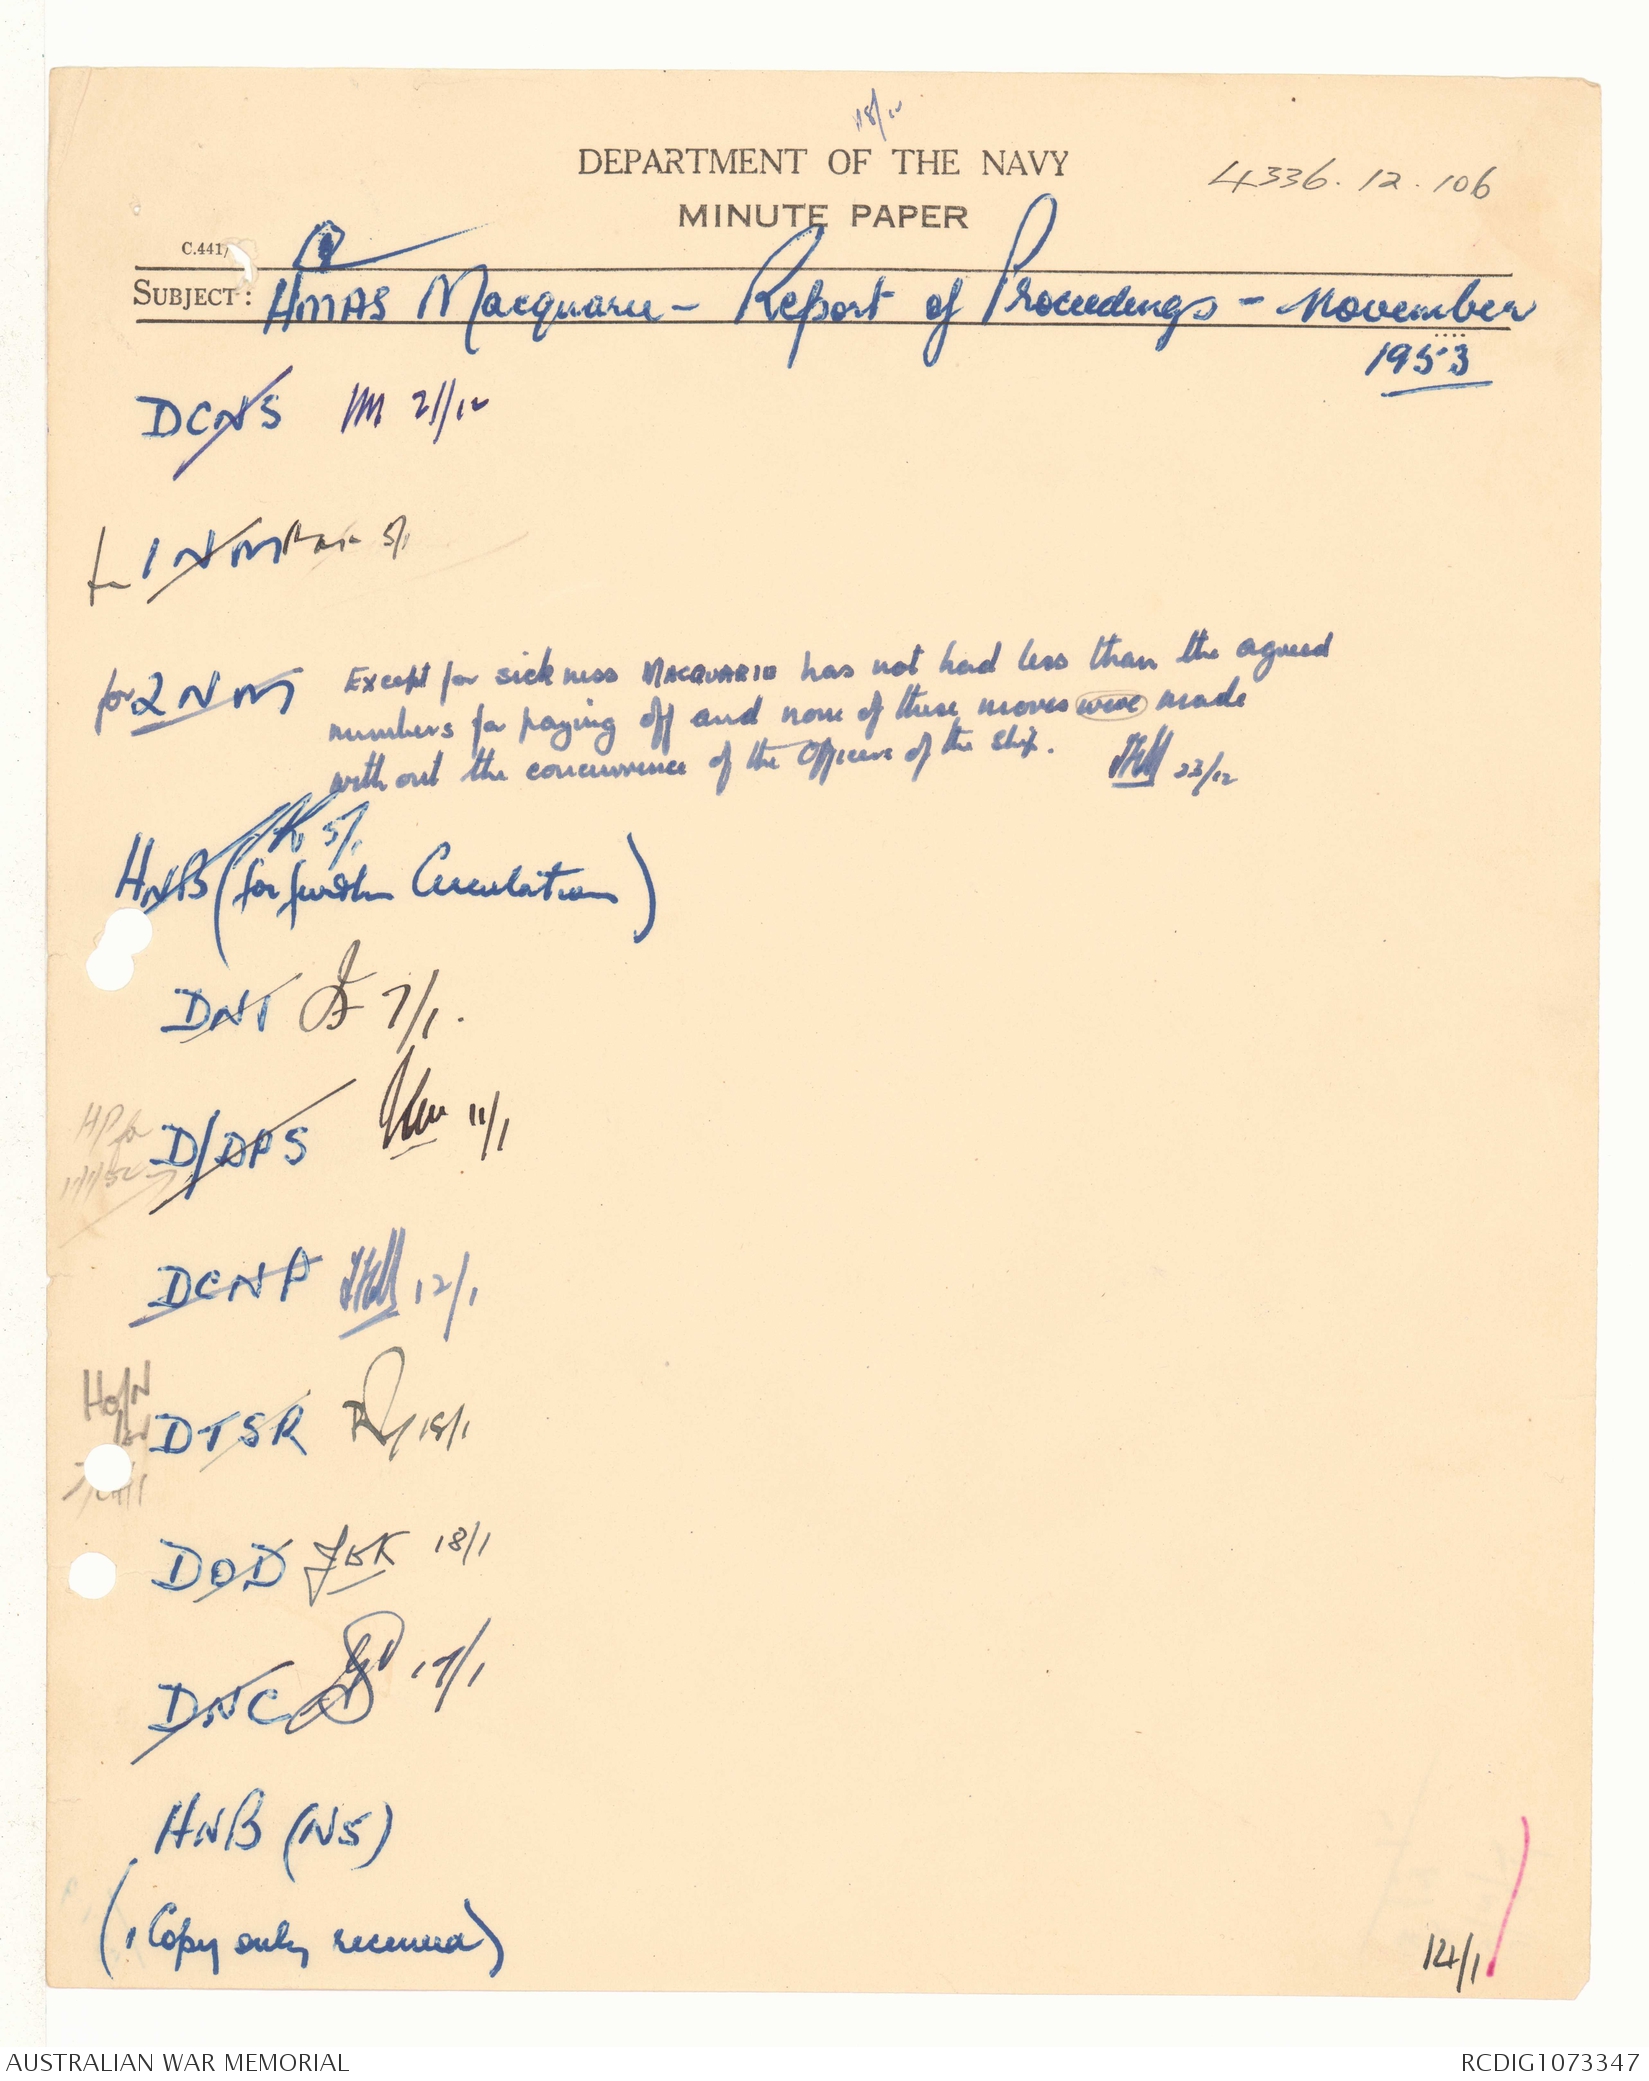 18/12
DEPARTMENT OF THE NAVY
4336.12.106
MINUTE PAPER
C.441/
SUBJECT: HMAS Macquarie - Report of Proceedings - November
1953
DCNS 21/12
for 1 NM 5/1
for 2 NM Except for sickness MACQUARIE has not had less than the agreed
numbers for paying off and none of these moves were made
without the concurrence of the Officers of the Ship. 23/12
5/1
HNB (for further Circulation)
DNT 7/1.
HP for
D/DPS 11/1
DCNP 12/1
DTSR 18/1
DOD 18/1
DNC 19/1
HNB (N5)
(1 Copy only received)
14/1
AUSTRALIAN WAR MEMORIAL
RCDIG1073347